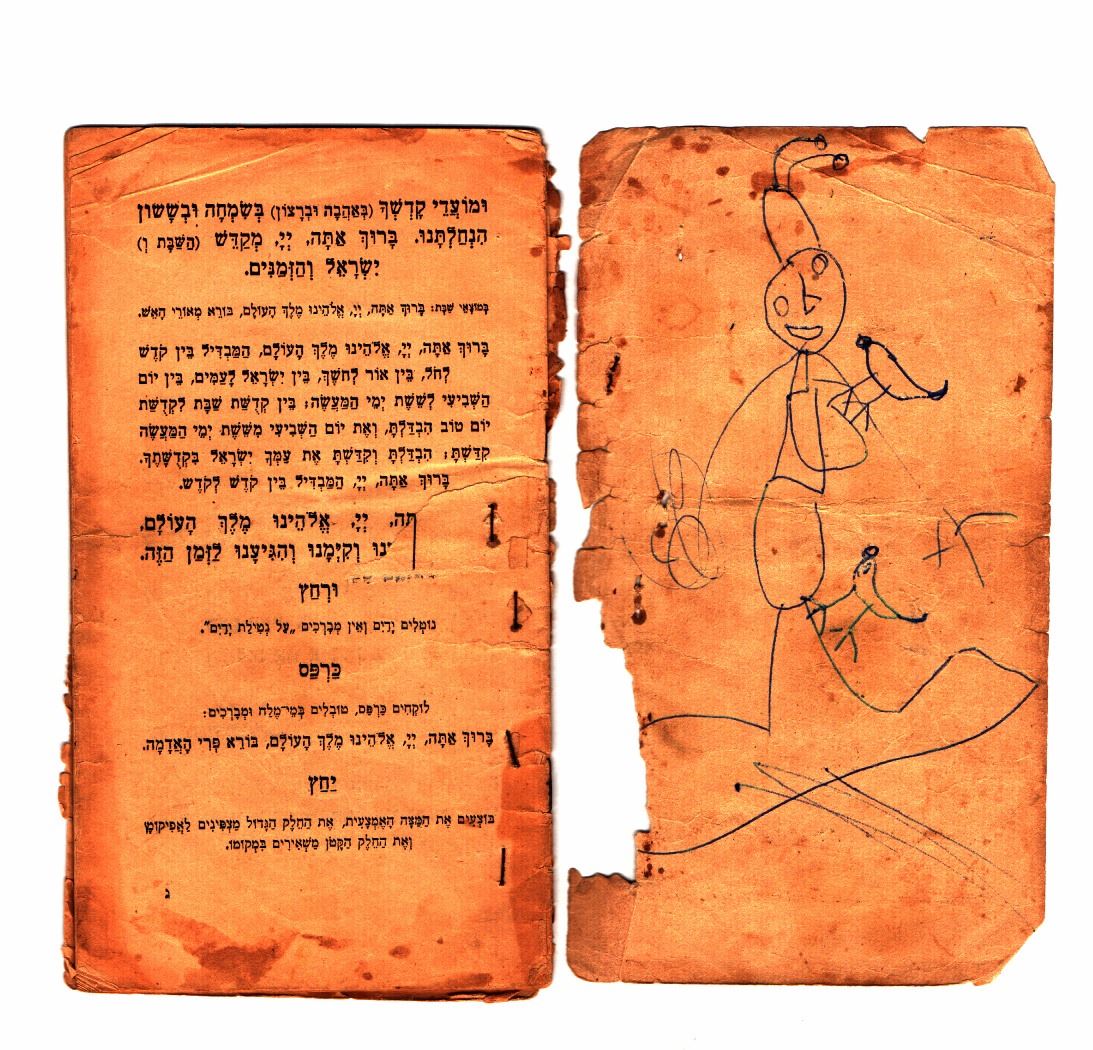 וּמוֹעֲדֵי קָדְשְׁךָ (בְּאַהֲבָה וּבְרָצוֹן) בְּשִׂמְחָה וּבְשָׂשׂוֹן
הִנְחַלְתָּנוּ. בָּרוּךְ אַתָּה, יְיָ, מְקַדֵּשׁ (הַשַּׁבָּת וְ)
יִשְׂרָאֵל וְהַזְּמַנִּים.
במוצאי שבת: בָּרוּךְ אַתָּה, יְיָ, אֱלֹהֵינוּ מֶלֶךְ הָעוֹלָם, בּוֹרֵא מְאוֹרֵי הָאֵשׁ.
בָּרוּךְ אַתָּה, יְיָ, אֱלֹהֵינוּ מֶלֶךְ הָעוֹלָם, הַמַּבְדִּיל בֵּין קֹדֶשׁ
לְחֹל, בֵּין אוֹר לְחֹשֶׁךְ, בֵּין יִשְׂרָאֵל לָעַמִּים, בֵּין יוֹם
הַשְּׁבִיעִי לְשֵׁשֶׁת יְמֵי הַמַּעֲשֶׂה; בֵּין קְדֻשַּׁת שַׁבָּת לִקְדֻשַּׁת
יוֹם טוֹב הִבְדַּלְתָּ, וְאֶת יוֹם הַשְּׁבִיעִי מִשֵּׁשֶׁת יְמֵי הַמַּעֲשֶׂה
קִדַּשְׁתָּ; הִבְדַּלְתָּ וְקִדַּשְׁתָּ אֶת עַמְּךָ יִשְׂרָאֵל בִּקְדֻשָּׁתֶךָ.
בָּרוּךְ אַתָּה, יְיָ, הַמַּבְדִּיל בֵּין קֹדֶשׁ לְקֹדֶשׁ.
תָּה, יְיָ, אֱלֹהֵינוּ מֶלֶךְ הָעוֹלָם,
נוּ וְקִיְּמָנוּ וְהִגִּיעָנוּ לַזְּמַן הַזֶּה.
וּרְחַץ
נוֹטְלִים יָדַיִם וְאֵין מְבָרְכִים „עַל נְטִילַת יָדַיִם".
כַּרְפַּס
לוֹקְחִים כַּרְפַּס, טוֹבְלִים בְּמֵי־מֶלַח וּמְבָרְכִים:
בָּרוּךְ אַתָּה, יְיָ, אֱלֹהֵינוּ מֶלֶךְ הָעוֹלָם, בּוֹרֵא פְּרִי הָאֲדָמָה.
יַחַץ
בּוֹצְעִים אֶת הַמַּצָּה הָאֶמְצָעִית, אֶת הַחֵלֶק הַגָּדוֹל מַצְפִּינִים לַאֲפִיקוֹמָן
וְאֶת הַחֵלֶק הַקָּטֹן מַשְׁאִירִים בִּמְקוֹמוֹ.